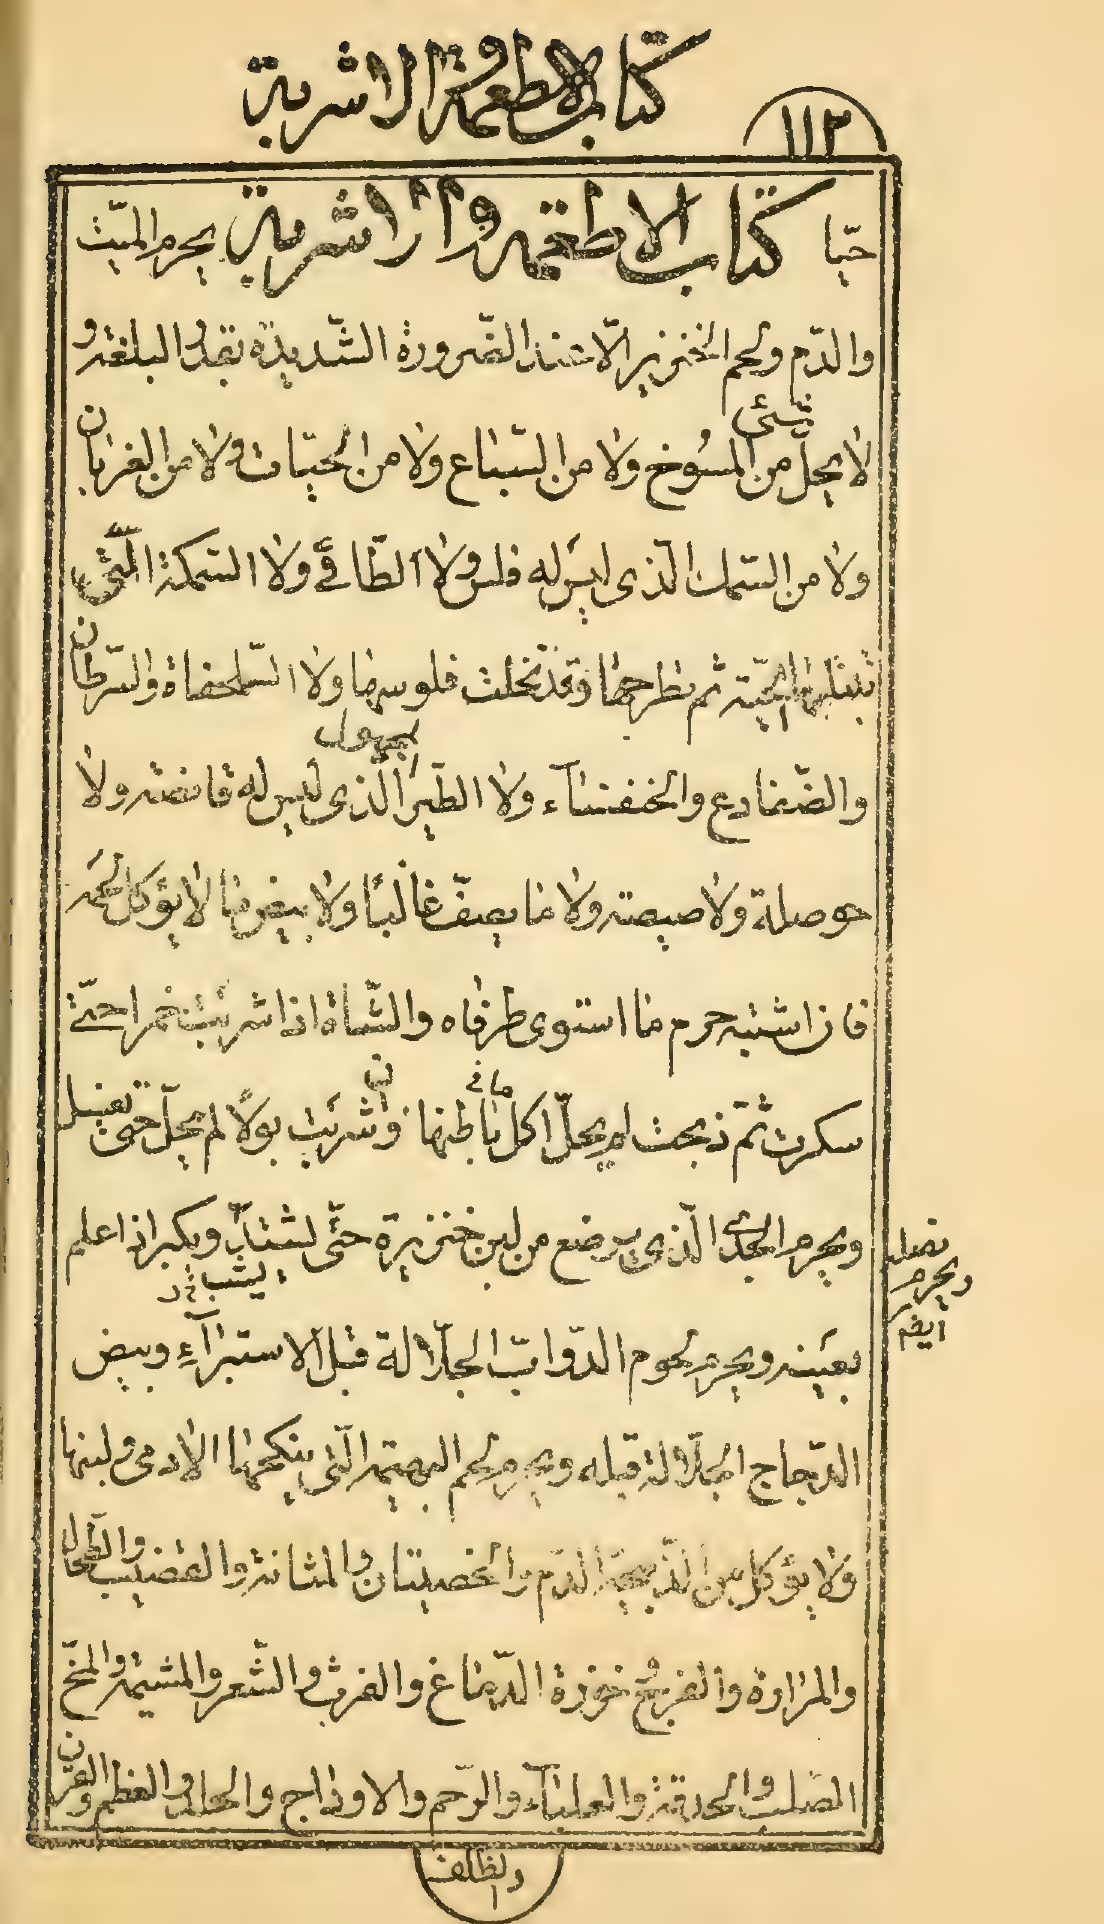 كتاب الاطعمة و الاشربة
١١٢
حيّا كتاب الاطعمة والاشربة يحرم الميّت
والدّم ولحم الخنزير الّا عند الضّرورة الشّديدة بقدر البلغة و
لا يحلّ شئ من المسُوخ ولا من السّباع ولا من الحيّات ولا من الغربان
ولا من السّمك الّذى ليس له فلس ولا الطّافى ولا السّمكة الّتى
تبتلعها الحيّة ثم تطرحها وقد تخلت فلوسها ولا السّلحفاة والسّرطان
والضّفادع والخنفساء ولا الطّير المجهول الّذى ليس له قانصة ولا
حوصلة ولا صيصة ولا ما يصفّ غالبًا ولا بيض ما لا يؤكل لحمه
فان اشتبه حرم ما استوى طرفاه والشّاة اذا شربت خمرا حتّى
سكرت ثمّ ذبحت لم يحلّ اكل ما فى باطنها وان شربت بولًا لم يحلّ حتى تغسل
ويحرم الجدى الّذى يرضع من لبن خنزيرة حتّى يشتدّ ويكبر اذا علم
يشب
نسله
ويحرم
ايضم
بعينه ويحرم لحوم الدّوابّ الجلّالة قبل الاستبراء وبيض
الدّجاج الجلّالة قبله ويحرم لحم البهيمة الّتى ينكحها الآدمى ولبنها
ولا يؤكل من الذّبيحة الدّم والخصيتان والمثانة والقضيب والطّحال
والمرارة والفرج وخرزة الدّماغ والفرث والشّعر والمشيمة والمخّ
الصّلب والحدقة والعلباء والرّحم والاوداج والجلد والعظم والقرن
والظلف